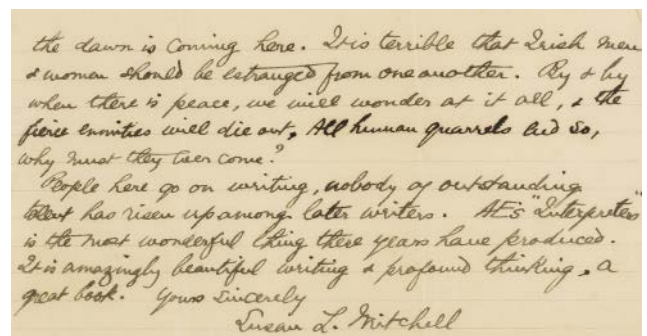 the dawn is coming here. It is terrible that Irish men
& women should be estranged from one another. By & by
when there is peace, we will wonder at it all, & the
fierce enmities will die out. All human quarrels end so,
why must they ever come?
People here go on writing, nobody of outstanding
talent has risen up among later writers. AE's "Interpreters"
is the most wonderful thing these years have produced.
It is amazingly beautiful writing & profound thinking, a
great book. Yours Sincerely
Susan L. Mitchell